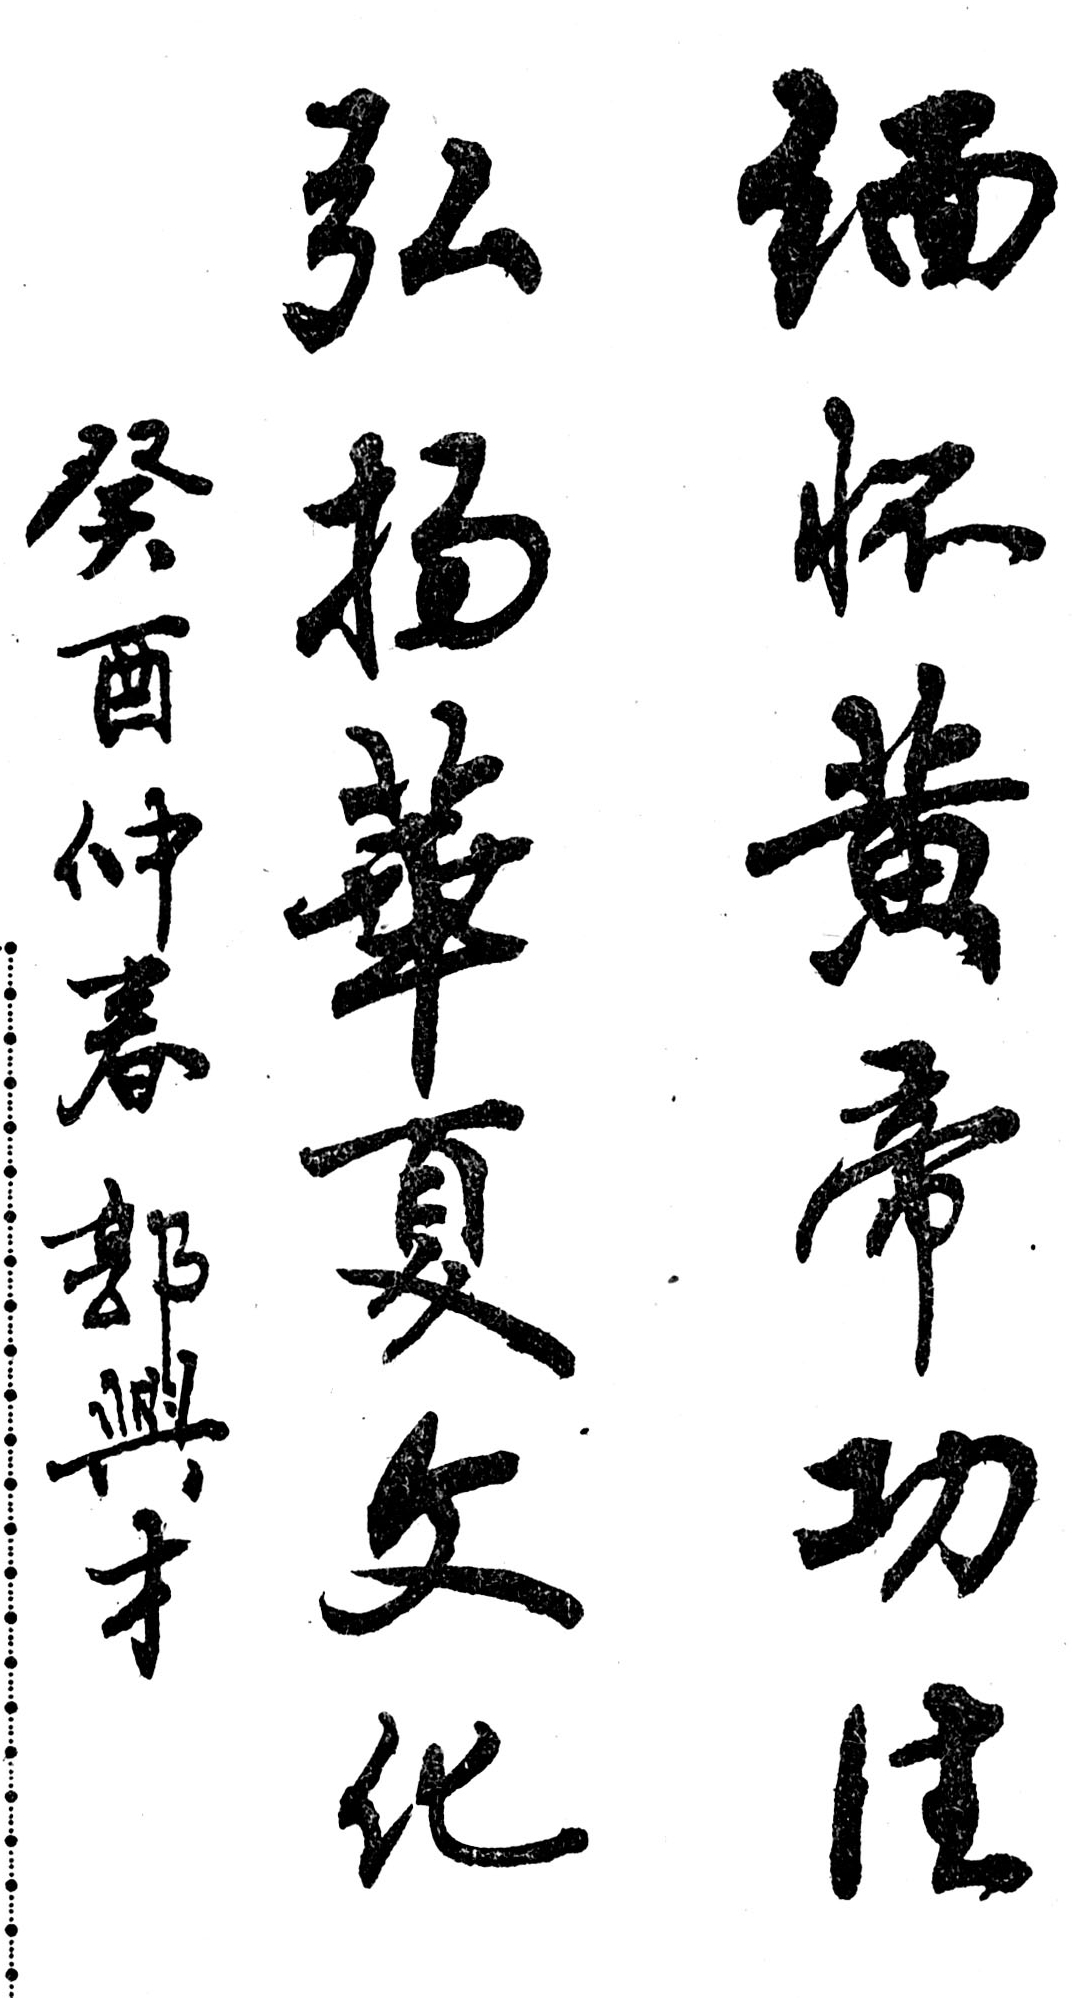 缅怀黄帝功德
弘扬華夏文化
癸酉仲春 郝興才